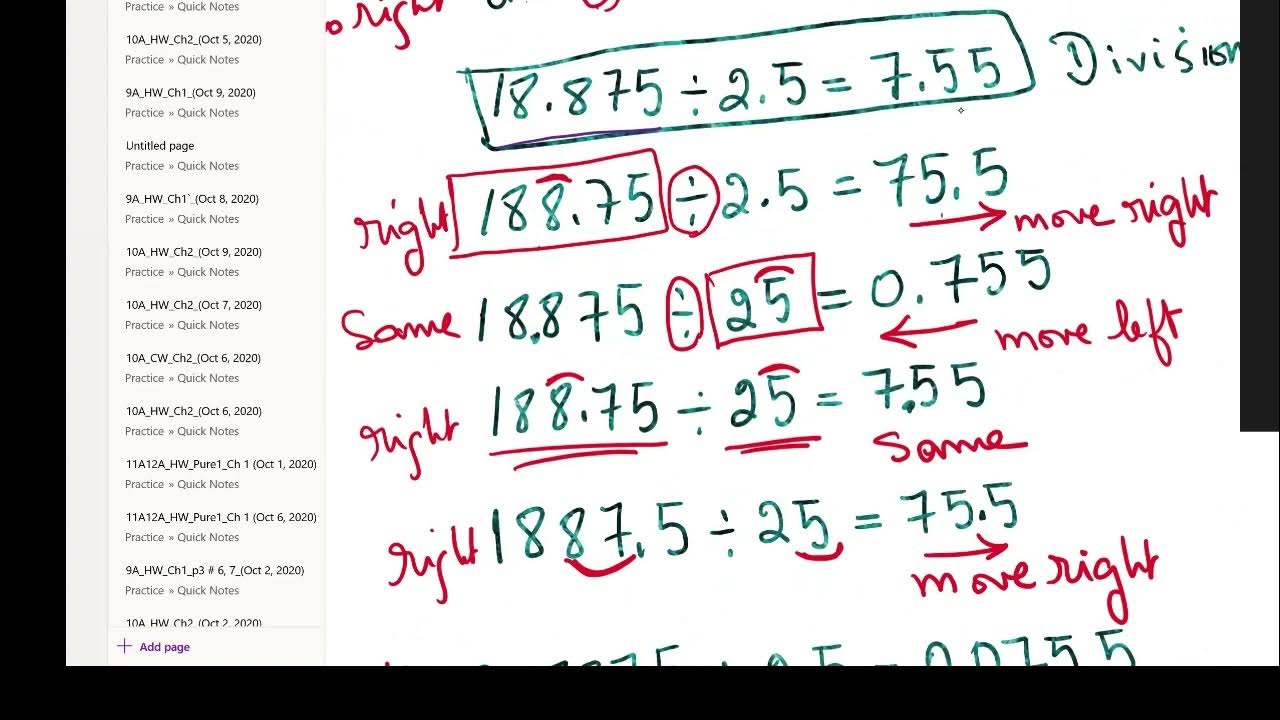 Practice » Quick Notes
10A_HW_Ch2_(Oct 5, 2020)
Practice » Quick Notes
9A_HW_Ch1_(Oct 9, 2020)
Practice » Quick Notes
Untitled page
Practice » Quick Notes
9A_HW_Ch1`_(Oct 8, 2020)
Practice » Quick Notes
10A_HW_Ch2_(Oct 9, 2020)
Practice » Quick Notes
10A_HW_Ch2_(Oct 7, 2020)
Practice » Quick Notes
10A_CW_Ch2_(Oct 6, 2020)
Practice » Quick Notes
9A_HW_Ch2_(Oct 6, 2020)
Practice » Quick Notes
11A12A_HW_Pure1_Ch 1 (Oct 1, 2020)
Practice » Quick Notes
11A12A_HW_Pure1_Ch 1 (Oct 6, 2020)
Practice » Quick Notes
9A_HW_Ch1_p3 # 6, 7_(Oct 2, 2020)
Practice » Quick Notes
10A_HW_Ch2_(Oct 2, 2020)
Add page
right
18.875 ÷ 2.5 = 7.55 Division
right 188.75 ÷ 2.5 = 75.5
move right
Same 18.875 ÷ 25 = 0.755
move left
right 188.75 ÷ 25 = 7.55
Same
right 1887.5 ÷ 25 = 75.5
move right